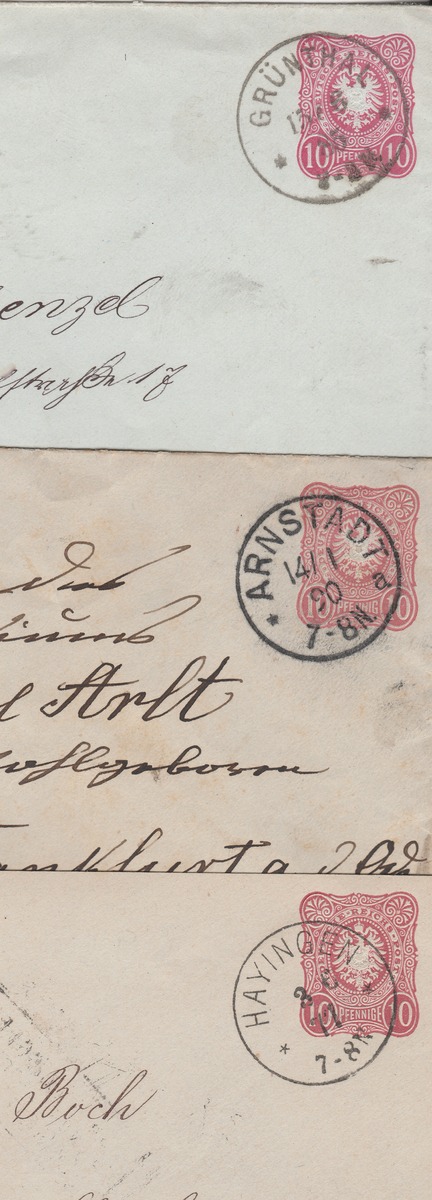 GRÜNTHAL
13/
7-8N.
10 PFENNIG 10
enzel
straße 17
ARNSTADT
14/1
a
90
7-8N.
10 PFENNIG 10
Arlt
ohlgeboren
ankfurt a
REICHS-POST
HAYINGEN
6
77
7-8N.
10 PFENNIGE 10
Boch